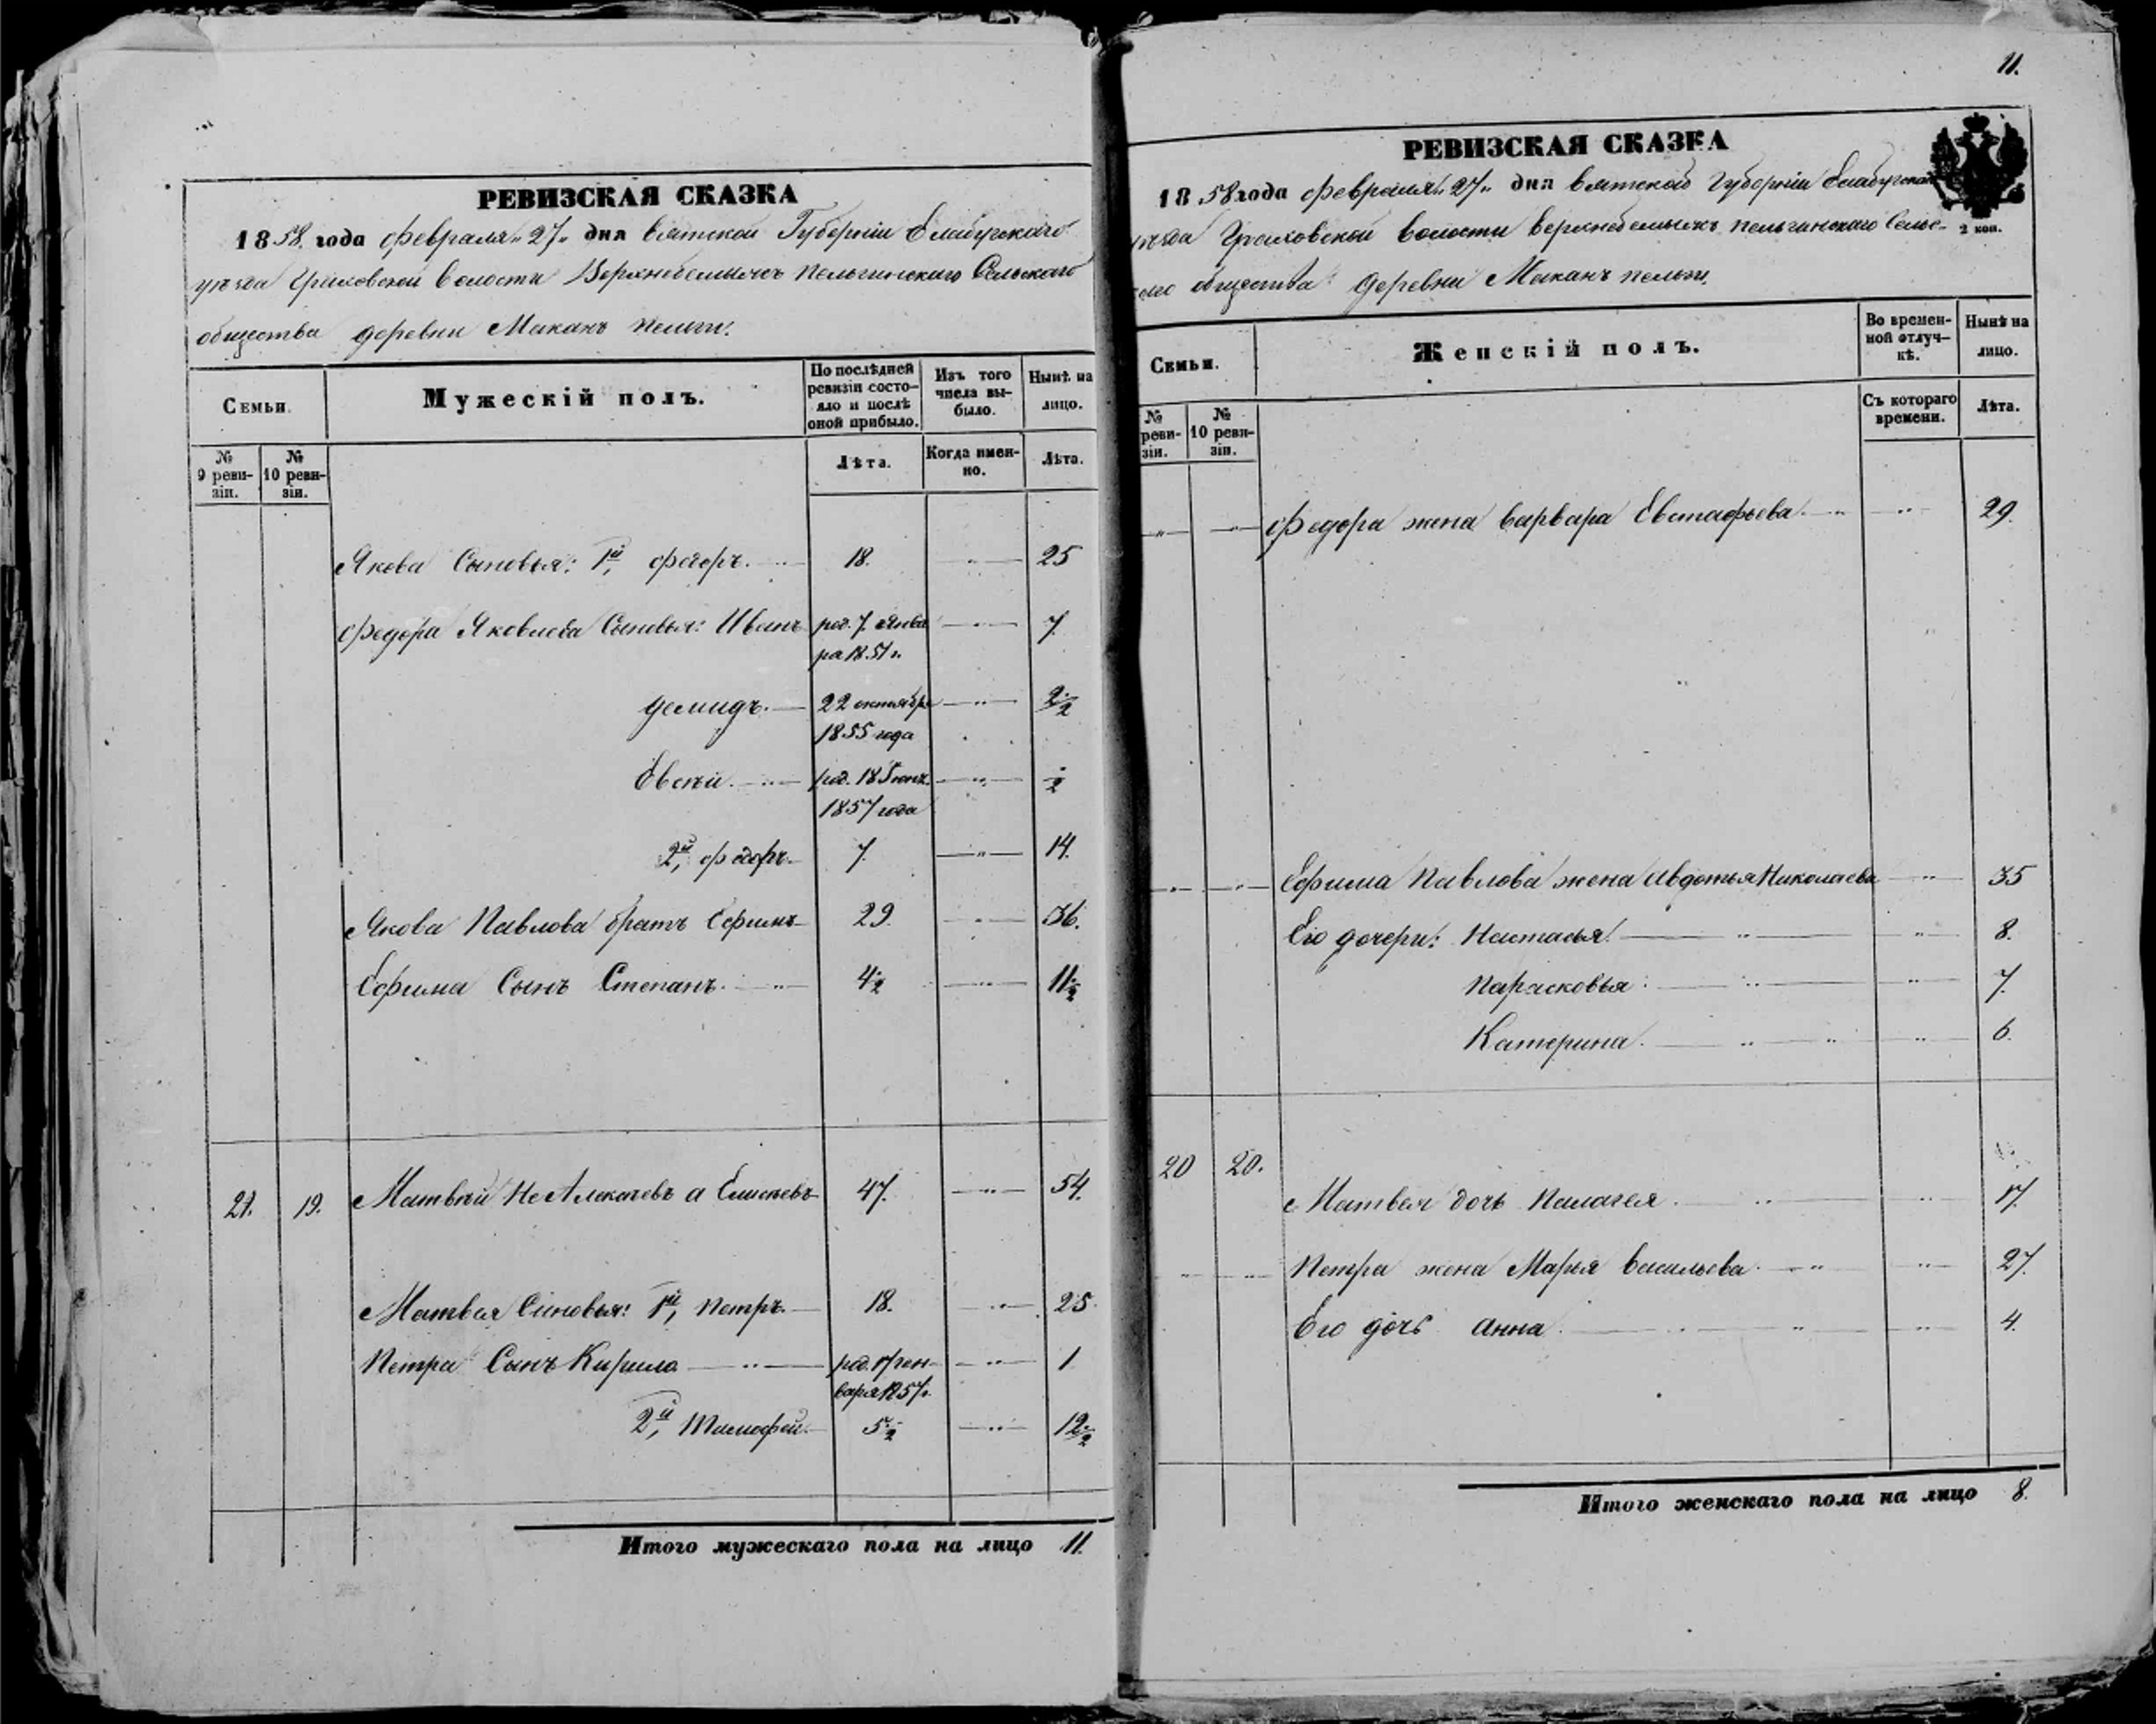 РЕВИЗСКАЯ СКАЗКА
1858. года февраля „27„ дня Вятской Губерніи Елабужскаго
уѣзда Граховской волости Верхнебемыжъ Пельгинскаго Сельскаго
общества деревни Маканъ Пельги.
Семьи.
Мужескій полъ.
По послѣдней ревизіи состояло и послѣ оной прибыло.
Изъ того числа выбыло.
Нынѣ на лицо.
№ 9 ревизіи.
№ 10 ревизіи.
Лѣта.
Когда именно.
Лѣта.
Якова Сыновья: 1й, Федоръ. 18. „ 25
Федора Яковлева Сыновья: Иванъ род. 7. Янва „ 7.
ра 1851 г.
Демидъ. 22 октября „ 2½
1855 года
Евсѣй. род. 18 Іюня „ ½
1857 года
2й, Федоръ. 7. „ 14.
Якова Павлова братъ Ефимъ 29. „ 36.
Ефима Сынъ Степанъ. 4½ „ 11½
21. 19. Матвѣй Не Алексѣевъ а Елисѣевъ 47. „ 54.
Матвея Синовья: 1й, Петръ. 18. „ 25.
Петра Сынъ Кирила „ род. 17 ген „ 1
варя 1857 г.
2й, Тимофей. 5½ „ 12½
Итого мужескаго пола на лицо 11.
11.
РЕВИЗСКАЯ СКАЗКА
1858 года февраля „27„ дня Вятской Губерніи Елабужскаго
уѣзда Граховской волости Верхнебемыжъ Пельгинскаго Сельс-
каго общества деревни Маканъ Пельги.
2 коп.
Семьи.
Женскій полъ.
Во временной отлучкѣ.
Нынѣ на лицо.
№ ревизіи.
№ 10 ревизіи.
Съ котораго времени.
Лѣта.
„ „ Федора жена Варвара Евстафьева. „ 29.
„ „ Ефима Павлова жена Авдотья Николаева „ 35
Его дочери: Настасья. „ „ 8.
Парасковья: „ „ 7.
Катерина. „ „ „ 6.
20 20.
Матвея дочь Палагея. „ „ 17.
„ „ Петра жена Марья Васильева. „ „ 27.
Его дочь Анна. „ „ „ 4.
Итого женскаго пола на лицо 8.